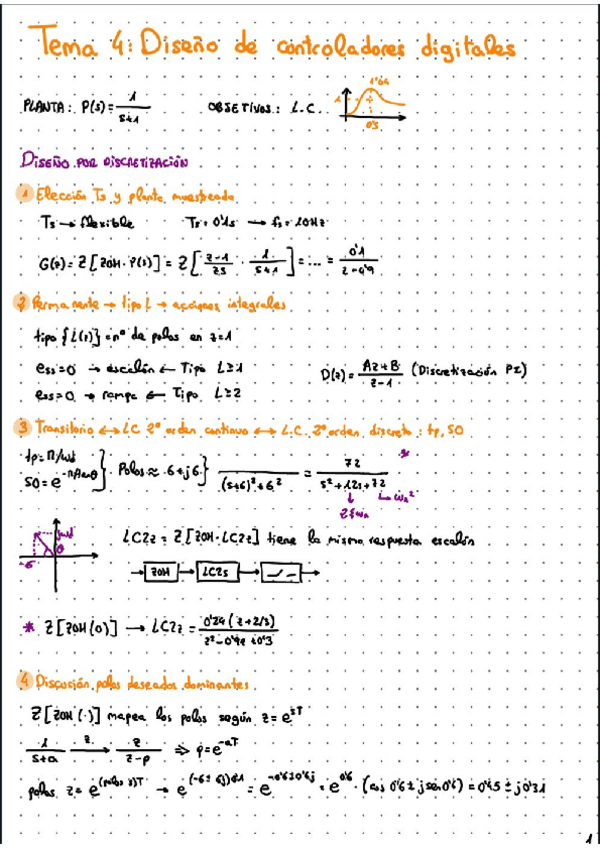 Tema 4: Diseño de controladores digitales
1'04
PLANTA: P(s) = 1/(s+1) OBJETIVOS: L.C. 1
0's
DISEÑO POR DISCRETIZACIÓN
1 Elección Ts y planta muestreada
Ts → flexible Ts = 0'1s → fs = 10Hz
G(z) = Z[ZOH · P(s)] = Z[(z-1)/(zs) · 1/(s+1)] = ... = 0'1/(z-0'9)
2 Permanente → tipo L → acciones integrales
tipo {L(z)} = nº de polos en z=1
ess=0 → escalón ← Tipo L≥1 D(z) = (Az+B)/(z-1) (Discretización PI)
ess=0 → rampa ← Tipo L≥2
3 Transitorio ↔ LC 2º orden continuo ↔ L.C. 2º orden discreto: tp, SO
tp = π/ωd
SO = e^(-π/tanθ) } Polos ≈ -6±j6 } /((s+6)²+6²) = 72/(s²+12s+72) *
2ξωn ωn²
jωd θ -σ
LC2z = Z[ZOH·LC2s] tiene la misma respuesta escalón
→ ZOH → LC2s →
* Z[ZOH(·)] → LC2z = 0'24(z+2/3)/(z²-0'9z+0'3)
4 Discusión polos deseados dominantes
Z[ZOH(·)] mapea los polos según z = e^(sT)
1/(s+a) Z→ z/(z-p) ⇒ p = e^(-aT)
polos z = e^((polos s)T) → e^((-6±6j)0'1) = e^(-0'6±0'6j) = e^(0'6) · (cos 0'6 ± j sen 0'6) = 0'45 ± j0'31
1